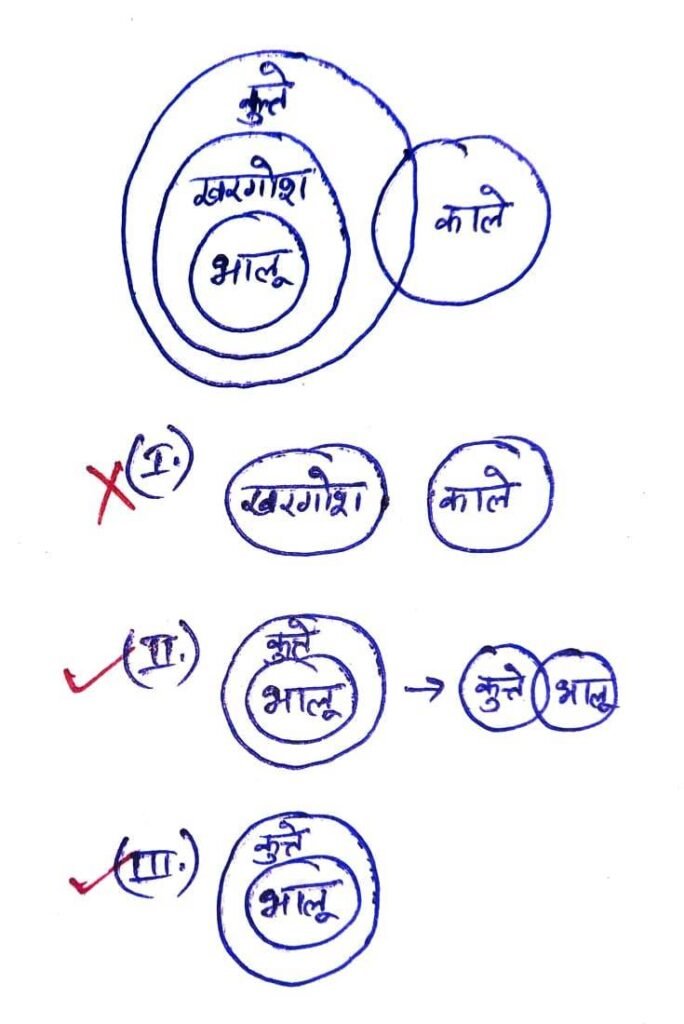 कुत्ते
खरगोश
भालू
काले
(I.)
खरगोश काले
(II.)
कुत्ते
भालू → कुत्ते भालू
(III.)
कुत्ते
भालू